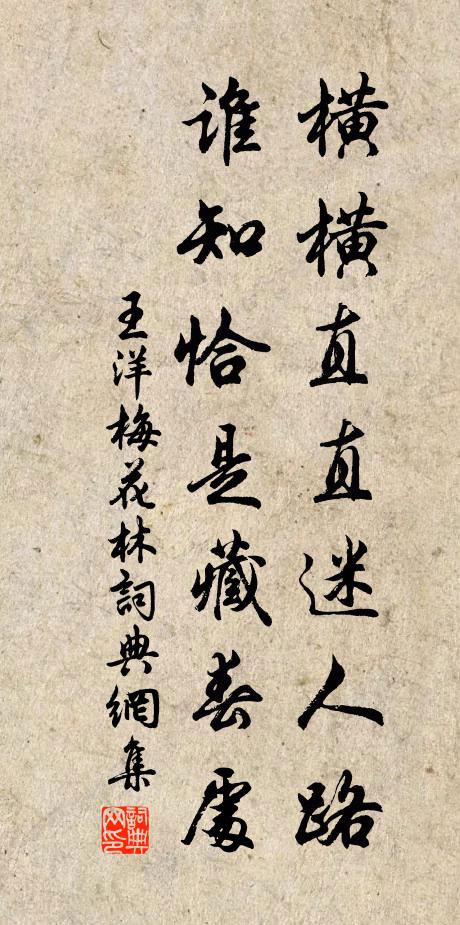 橫橫直直迷人路
誰知恰是藏春處
王洋梅花林詞典網集
詞典
网印